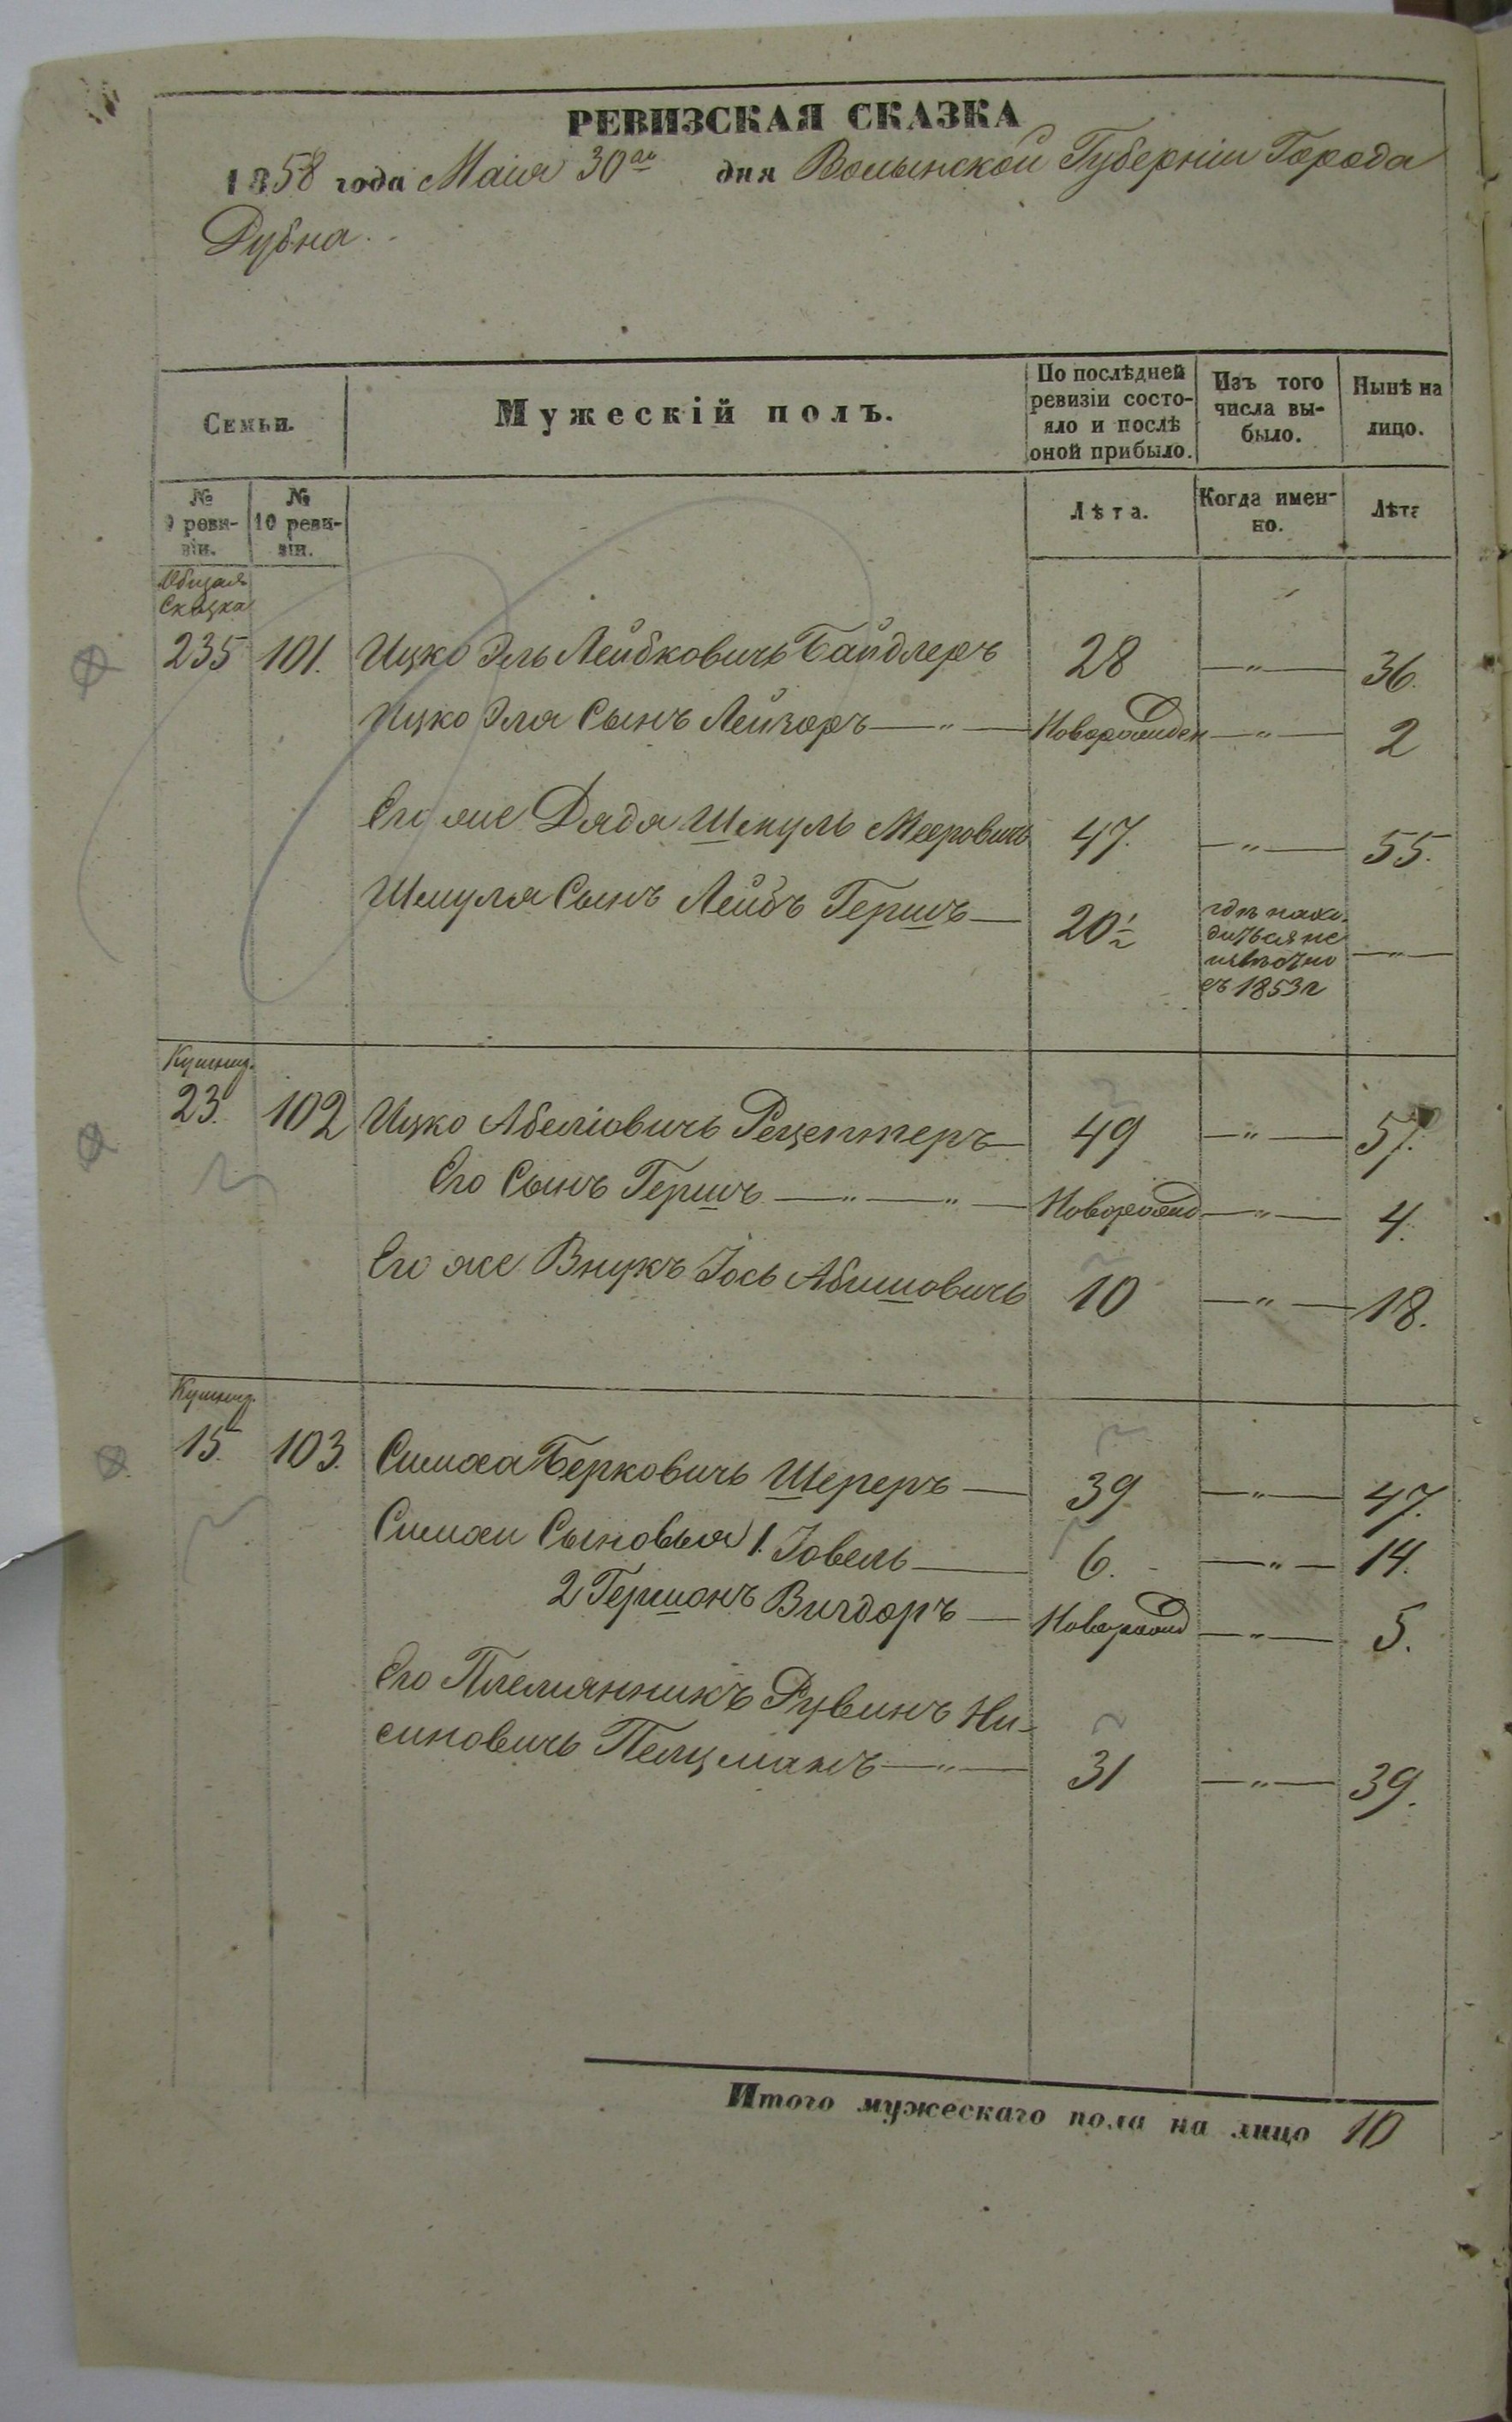 РЕВИЗСКАЯ СКАЗКА
1858 года Маія 30го дня Волынской Губерніи Города
Дубна
Семьи.
Мужескій полъ.
По послѣдней ревизіи состо-
яло и послѣ
оной прибыло.
Изъ того
числа вы-
было.
Нынѣ на
лицо.
№
9 реви-
зіи.
№
10 реви-
зіи.
Лѣта.
Когда имен-
но.
Лѣта
Общая
Сказка
235 101. Ицко Эль Лейбковичъ Байдлеръ 28 —"— 36.
Ицко Эля Сынъ Лейзоръ —"— Новорожден —"— 2
Его же Дядя Шмуль Мееровичъ 47. —"— 55.
Шмуля Сынъ Лейбъ Гершъ — 20½ гдѣ нахо-
диться не
извѣстно
съ 1853 г —"—
23. 102 Ицко Абеліовичъ Рецептеръ — 49 —"— 57.
Его Сынъ Гершъ —"—"— Новорожд —"— 4.
Его же Внукъ Іось Абишовичъ 10 —"— 18.
15. 103. Симха Берковичъ Шереръ — 39 —"— 47.
Симхи Сыновья 1. Іовель — 6. —"— 14.
2 Гершонъ Вигдоръ — Новорожд —"— 5.
Его Племянникъ Рувинъ Ни-
синовичъ Пелцманъ —"— 31 —"— 39.
Итого мужескаго пола на лицо 10